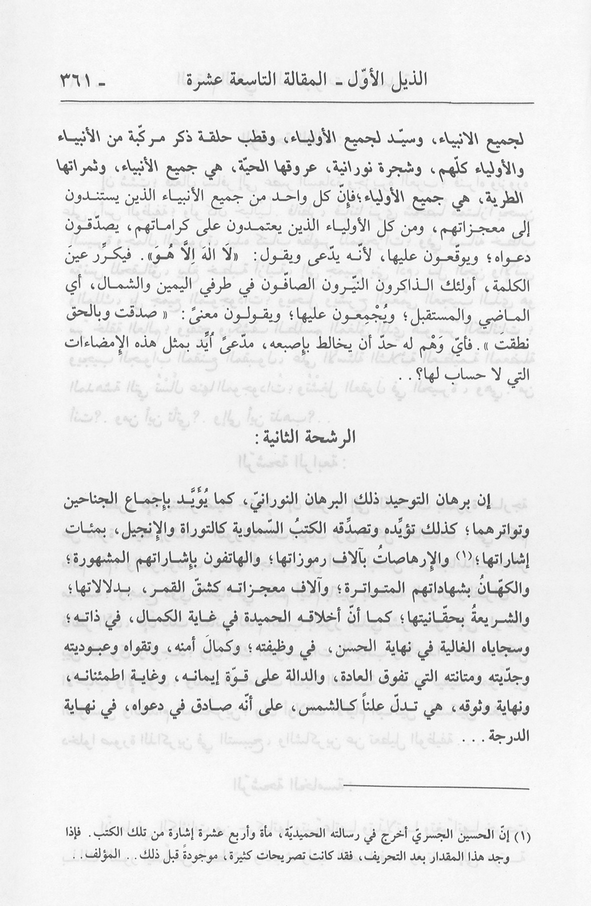 الذيل الأوّل ـ المقالة التاسعة عشرة ـ ٣٦١
لجميع الانبياء، وسيّد لجميع الأولياء، وقطب حلقة ذكر مركبّة من الأنبياء
والأولياء كلّهم، وشجرة نورانية، عروقها الحيّة، هي جميع الأنبياء، وثمراتها
الطرية، هي جميع الأولياء؛ فإنّ كل واحد من جميع الأنبياء الذين يستندون
إلى معجزاتهم، ومن كل الأولياء الذين يعتمدون على كراماتهم، يصدّقون
دعواه؛ ويوقّعون عليها، لأنّه يدّعى ويقول: «لَا الَهَ اِلاَّ هُوَ». فيكرِّر عينَ
الكلمة، أولئك الذاكرون النيّرون الصافّون في طرفي اليمين والشمال، أي
الماضي والمستقبل؛ ويُجْمعون عليها؛ ويقولون معنىً: « صدقت وبالحق
نطقت ». فأيّ وَهْم له حدّ أن يخالط بإصبعه، مدّعىً أيِّد بمثل هذه الإمضاءات
التي لا حساب لها؟..
الرشحة الثانية:
إن برهان التوحيد ذلك البرهان النورانيّ، كما يُؤَيَّد بإجماع الجناحين
وتواترهما؛ كذلك تؤيِّده وتصدِّقه الكتبُ السّماوية كالتوراة والإنجيل، بمئات
إشاراتها؛(١) والإرهاصاتُ بآلاف رموزاتها؛ والهاتفون بإشاراتهم المشهورة؛
والكهّانُ بشهاداتهم المتواترة؛ وآلاف معجزاته كشقّ القمر، بدلالاتها؛
والشريعةُ بحقّانيتها؛ كما أنّ أخلاقه الحميدة في غاية الكمال، في ذاته؛
وسجاياه الغالية في نهاية الحسن، في وظيفته؛ وكمالَ أمنه، وتقواه وعبوديته
وجدّيته ومتانته التي تفوق العادة، والدالة على قوّة إيمانه، وغاية اطمئنانه،
ونهاية وثوقه، هي تدلّ علناً كالشمس، على أنّه صادق في دعواه، في نهاية
الدرجة...
(١) إنّ الحسين الجسريّ أخرج في رسالته الحميديّة، مأة وأربع عشرة إشارة من تلك الكتب. فإذا
وجد هذا المقدار بعد التحريف، فقد كانت تصريحات كثيرة، موجودةً قبل ذلك.. المؤلف..